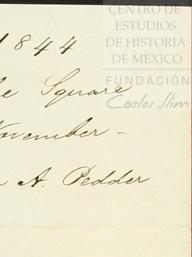 1844
CENTRO DE
ESTUDIOS
DE HISTORIA
DE MEXICO
FUNDACIÓN
Carlos Slim
Square
November -
A. Pedder